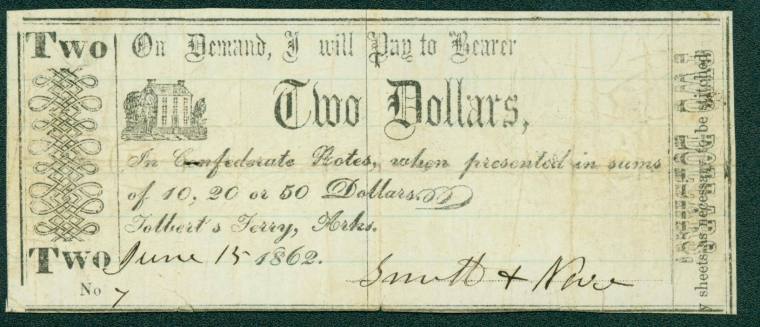 Two
On Demand, I will Pay to Bearer
Two Dollars,
In Confederate Notes, when presented in sums
of 10, 20 or 50 Dollars.
Tolbert's Ferry, Arks.
Two
June 15 1862.
Smith +
No 7
y sheets as necessary to be stitched